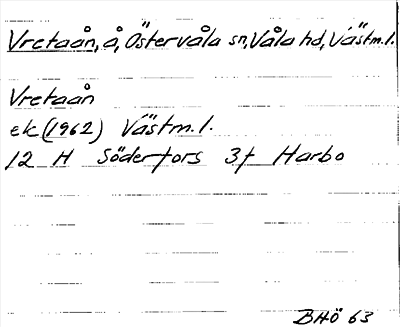 Vretaån, å, Östervåla sn, Våla hd, Västm.l.
Vretaån
ek (1962) Västm.l.
12 H Söderfors 3f Harbo
BHÖ 63